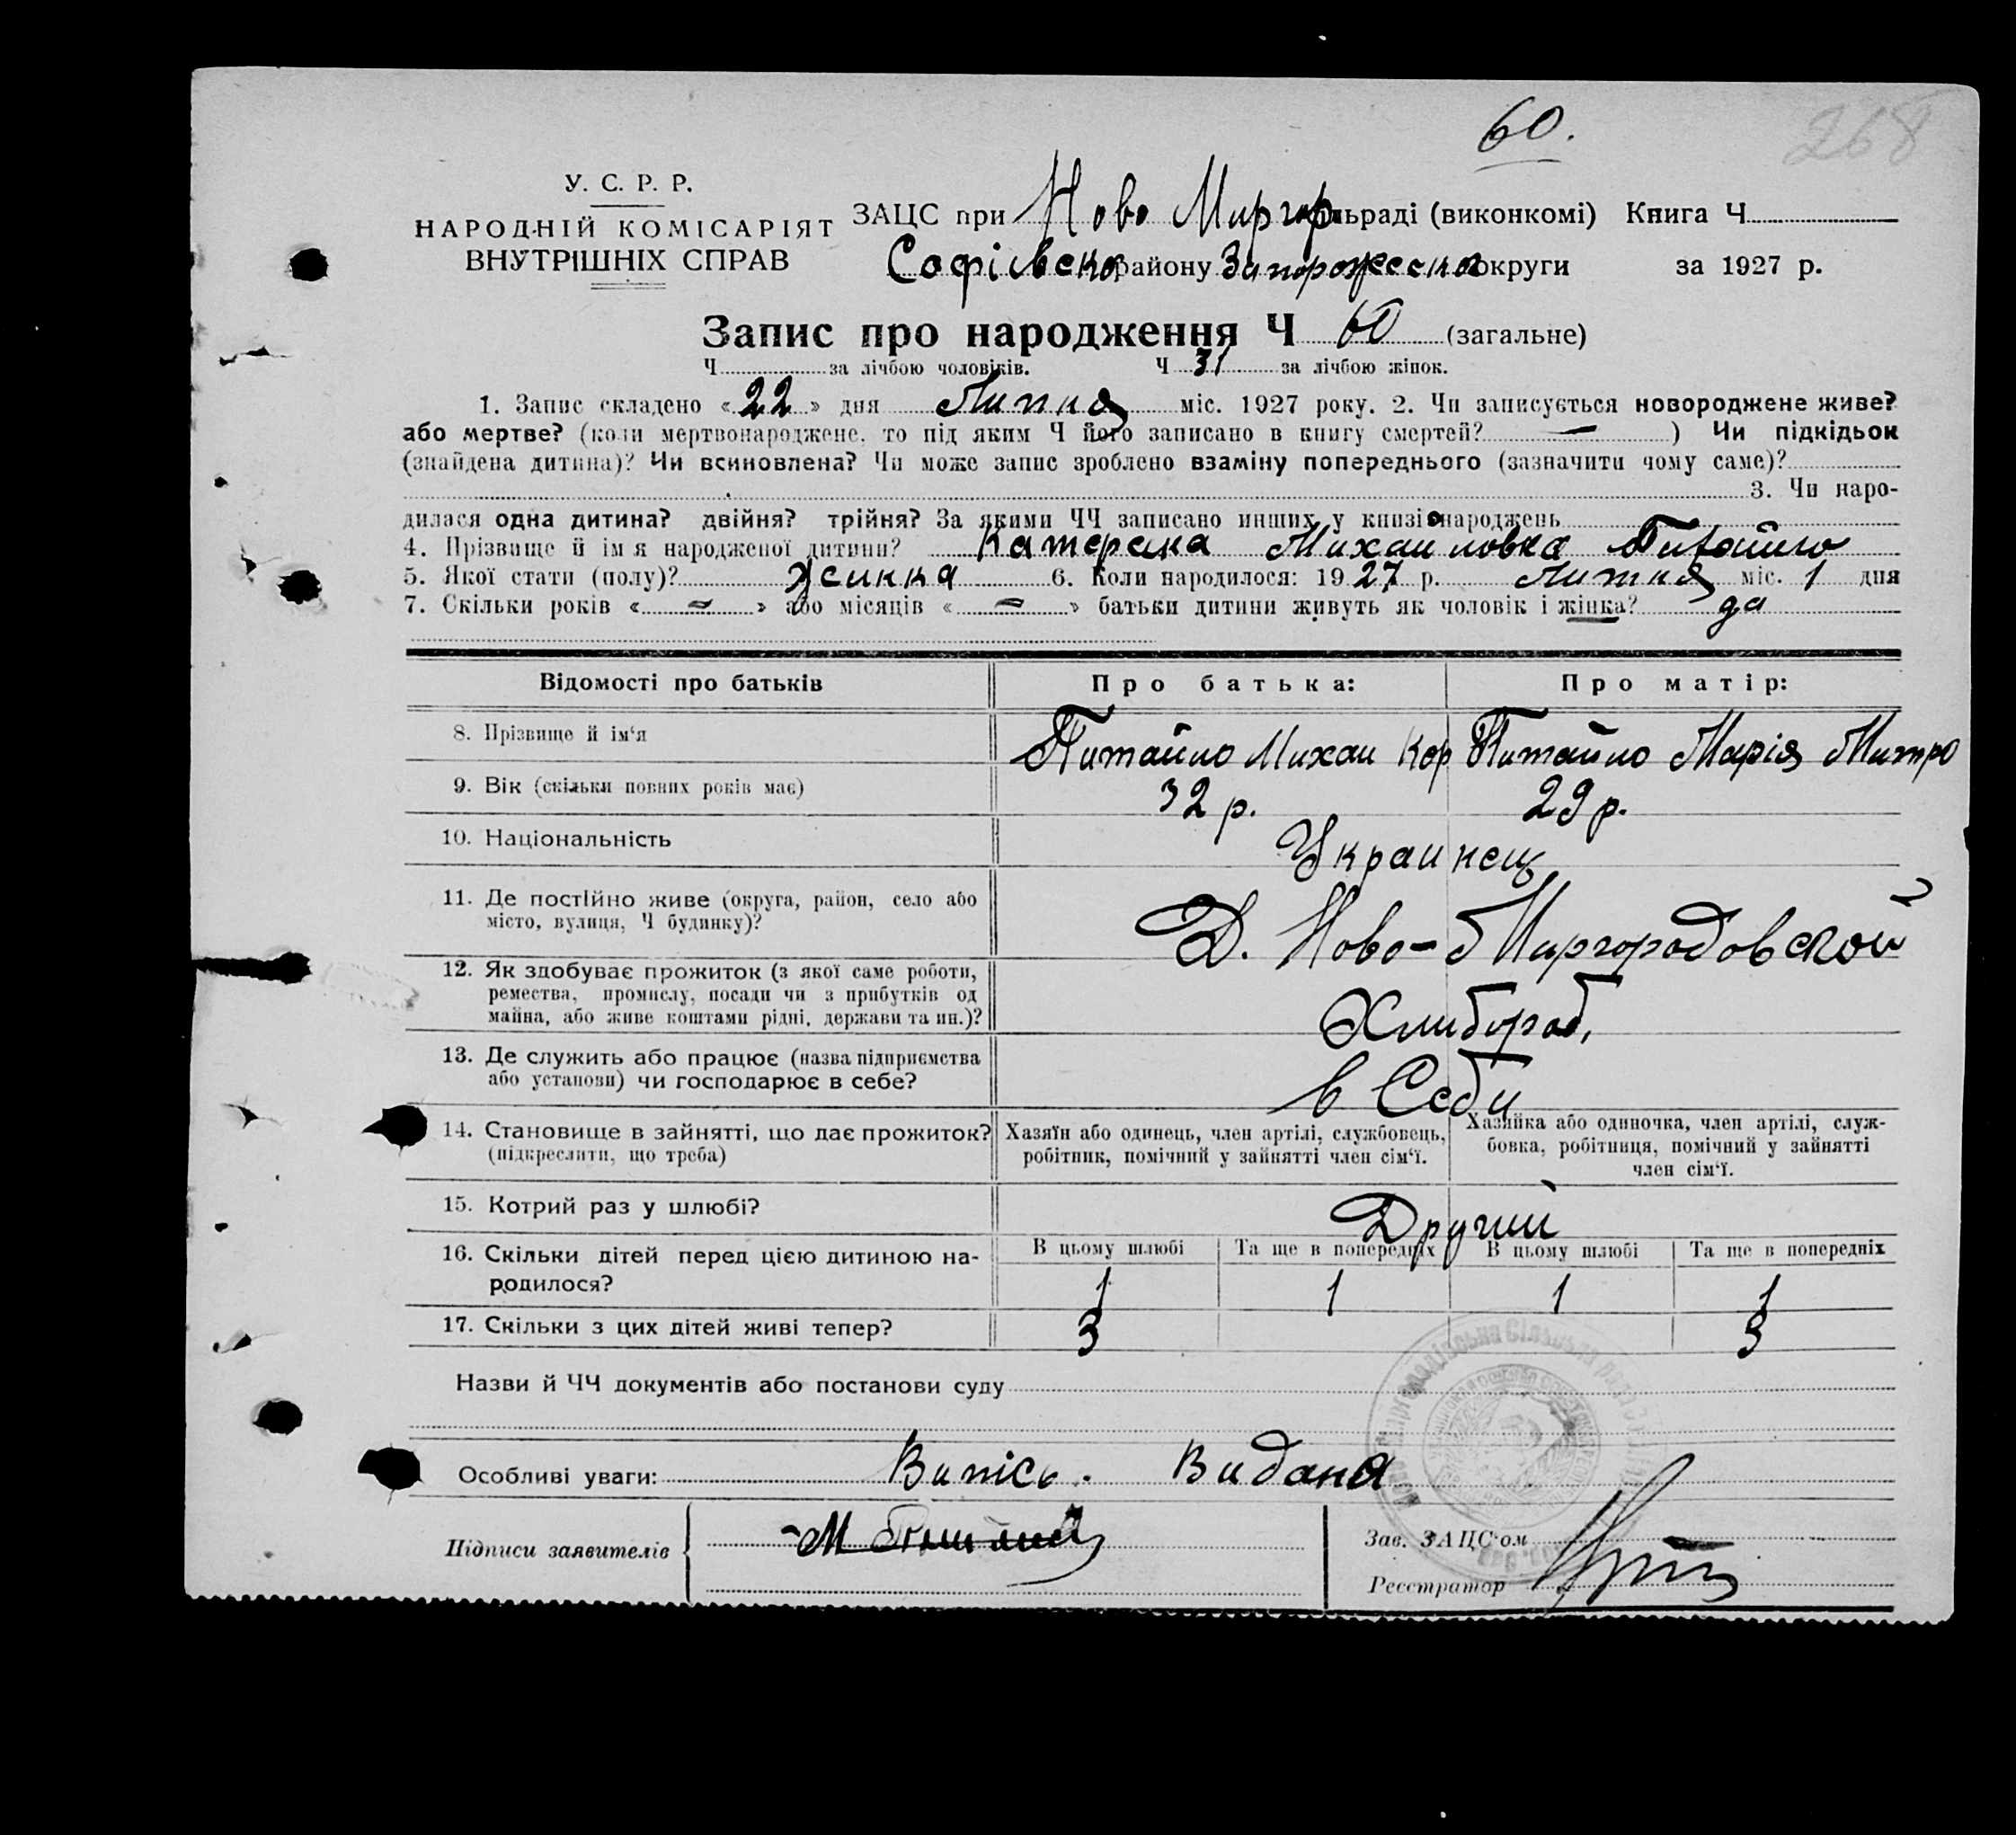 60.
268
У. С. Р. Р.
НАРОДНІЙ КОМІСАРІЯТ
ВНУТРІШНІХ СПРАВ
ЗАЦС при Ново Миргор сільраді (виконкомі) Книга Ч
Софієвсько району Запорожсско округи за 1927 р.
Запис про народження Ч 60 (загальне)
Ч за лічбою чоловіків. Ч 31 за лічбою жінок.
1. Запис складено «22» дня Липня міс. 1927 року. 2. Чи записується новороджене живе?
або мертве? (коли мертвонароджене, то під яким Ч його записано в книгу смертей? — ) Чи підкідьок
(знайдена дитина)? Чи всиновлена? Чи може запис зроблено взаміну попереднього (зазначити чому саме)?
3. Чи наро-
дилася одна дитина? двійня? трійня? За якими ЧЧ записано инших у книзі народжень
4. Прізвище й ім'я народженої дитини? Катерина Михаиловна Питайло
5. Якої стати (полу)? Жинка 6. Коли народилося: 1927 р. Липня міс. 1 дня
7. Скільки років « = » або місяців « = » батьки дитини живуть як чоловік і жінка? да
Відомості про батьків Про батька: Про матір:
8. Прізвище й ім'я Питайло Михаи Кор Питайло Марія Митро
9. Вік (скільки повних років має) 32 р. 29 р.
10. Національність Украинец
11. Де постійно живе (округа, район, село або
місто, вулиця, Ч будинку)? Д. Ново-Миргородовской
12. Як здобуває прожиток (з якої саме роботи,
ремества, промислу, посади чи з прибутків од
майна, або живе коштами рідні, держави та ин.)? Хлибороб,
13. Де служить або працює (назва підприємства
або установи) чи господарює в себе? в Себи
14. Становище в зайнятті, що дає прожиток?
(підкреслити, що треба)
Хазяїн або одинець, член артілі, службовець,
робітник, помічний у зайнятті член сім'ї.
Хазяйка або одиночка, член артілі, служ-
бовка, робітниця, помічний у зайнятті
член сім'ї.
15. Котрий раз у шлюбі? Другий
16. Скільки дітей перед цією дитиною на-
родилося?
В цьому шлюбі Та ще в попередніх В цьому шлюбі Та ще в попередніх
1 1 1 1
17. Скільки з цих дітей живі тепер? 3 3
Назви й ЧЧ документів або постанови суду
Особливі уваги: Випісь. Видана
Підписи заявителів
Зав. ЗАЦС'ом
Реєстратор